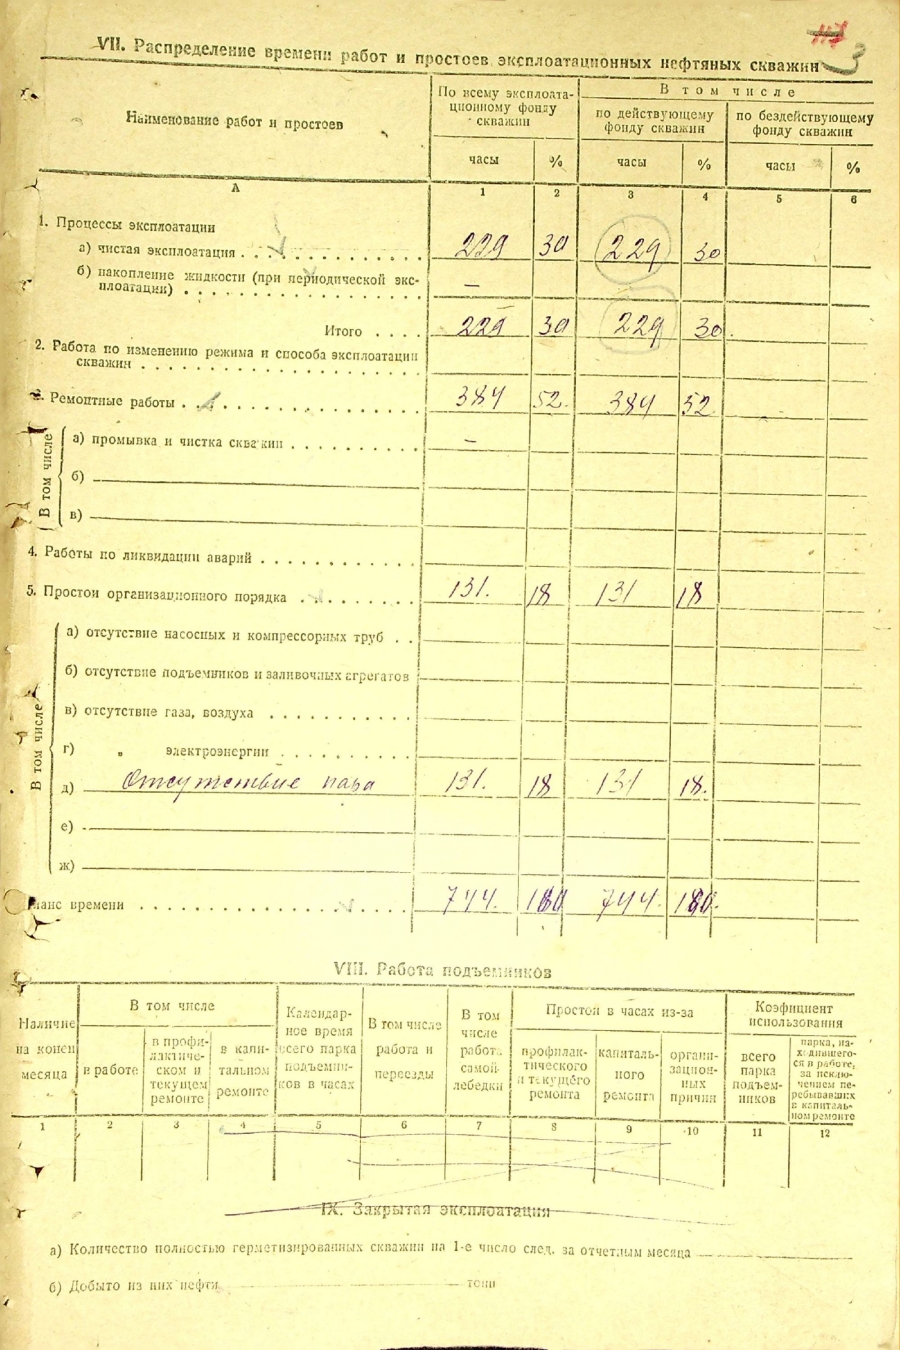 VII. Распределение времени работ и простоев эксплоатационных нефтяных скважин
3
Наименование работ и простоев
По всему эксплоата-
ционному фонду
скважин
В том числе
по действующему
фонду скважин
по бездействующему
фонду скважин
часы % часы % часы %
А 1 2 3 4 5 6
1. Процессы эксплоатации
а) чистая эксплоатация . . . . . . . . . . . . 229 30 229 30
б) накопление жидкости (при периодической экс-
плоатации) . . . . . . . . . . . . . . . —
Итого . . . . 229 30 229 30
2. Работа по изменению режима и способа эксплоатации
скважин . . . . . . . . . . . . . . . . . .
Ремонтные работы . . . . . . . . . . . . . 384 52 384 52
В том числе
а) промывка и чистка скважин . . . . . . . . . —
б)
в)
4. Работы по ликвидации аварий . . . . . . . . . . .
5. Простои организационного порядка . . . . . . . . . 131. 18 131 18
В том числе
а) отсутствие насосных и компрессорных труб . .
б) отсутствие подъемников и заливочных агрегатов
в) отсутствие газа, воздуха . . . . . . . . . . .
г) „ электроэнергии . . . . . . . . . .
д) Отсутствие пара 131. 18 131 18.
е)
ж)
ланс времени . . . . . . . . . . . . . . . . . 744. 100 744. 100.
VIII. Работа подъемников
Наличие
на конец
месяца
В том числе
в работе
в профи-
лактиче-
ском и
текущем
ремонте
в капи-
тальном
ремонте
Календар-
ное время
всего парка
подъемни-
ков в часах
В том числе
работа и
переезды
В том
числе
работа
самой
лебедки
Простои в часах из-за
профилак-
тического
и текущего
ремонта
капиталь-
ного
ремонта
органи-
зацион-
ных
причин
Коэфициент
использования
всего
парка
подъем-
ников
парка, на-
ходившего-
ся в работе,
за исклю-
чением пе-
ребывавших
в капиталь-
ном ремонте
1 2 3 4 5 6 7 8 9 10 11 12
IX. Закрытая эксплоатация
а) Количество полностью герметизированных скважин на 1-е число след. за отчетным месяца
б) Добыто из них нефти тонн